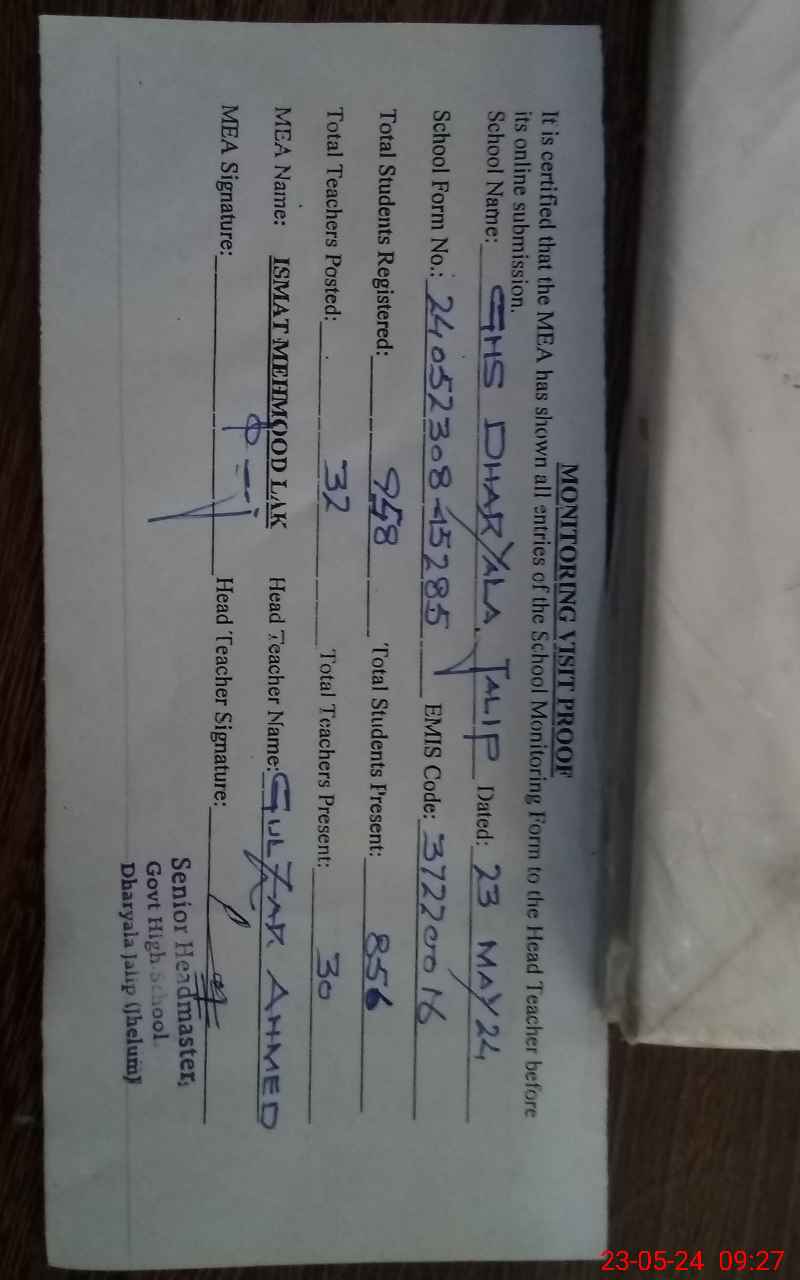 MONITORING VISIT PROOF
It is certified that the MEA has shown all entries of the School Monitoring Form to the Head Teacher before
its online submission.
School Name: GHS DHARYALA JALIP Dated: 23 MAY 24
School Form No.: 2405230845285 EMIS Code: 37220016
Total Students Registered: 958 Total Students Present: 856
Total Teachers Posted: 32 Total Teachers Present: 30
MEA Name: ISMAT MEHMOOD LAK Head Teacher Name: GULZAR AHMED
MEA Signature: Head Teacher Signature:
Senior Headmaster,
Govt High School
Dharyala Jalip (Jhelum)
23-05-24 09:27